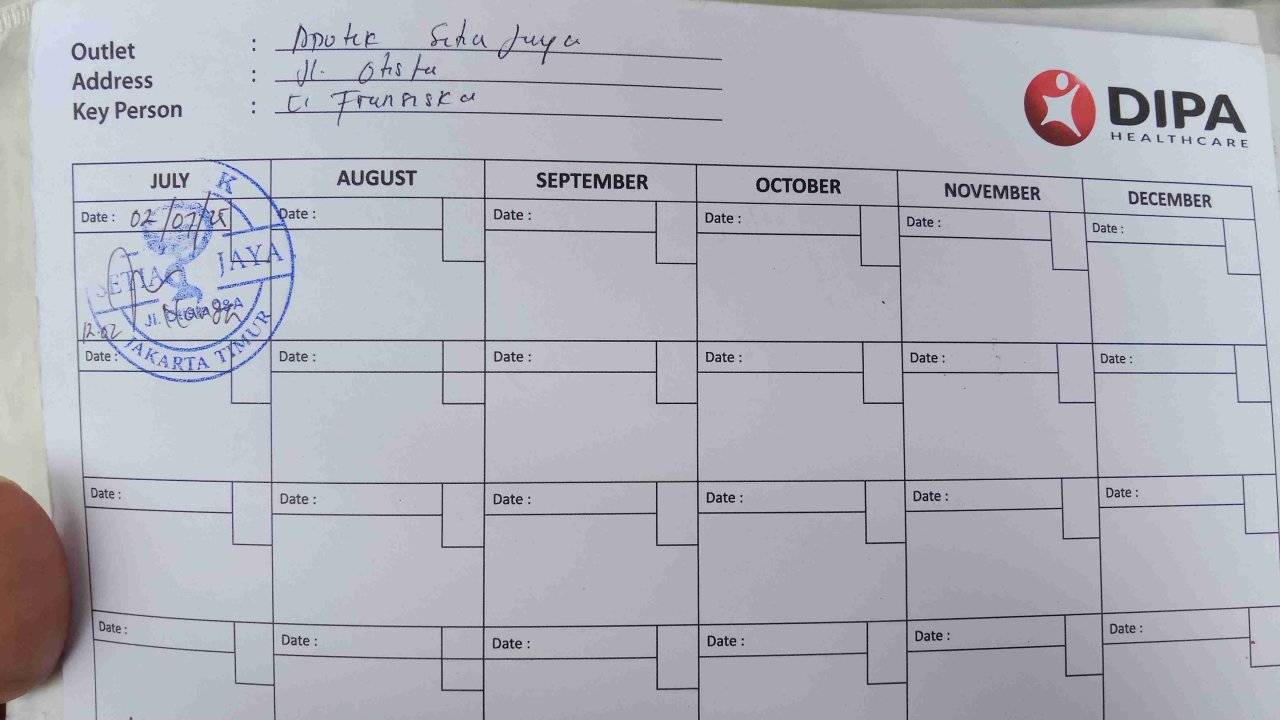 Outlet : Apotek Setia Jaya
Address : Jl. Otista
Key Person : Fransiska
DIPA
HEALTHCARE
JULY AUGUST SEPTEMBER OCTOBER NOVEMBER DECEMBER
Date : 02/07/25 Date : Date : Date : Date : Date :
K
SETIA JAYA
Jl.
12.02
JAKARTA TIMUR
Date : Date : Date : Date : Date : Date :
Date : Date : Date : Date : Date : Date :
Date : Date : Date : Date : Date : Date :